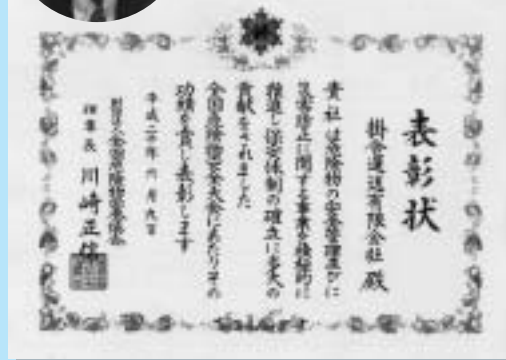 表彰状
掛合運送有限会社 殿
貴社は危険物の安全管理並びに
災害防止に関する事業を積極的に
推進し保安体制の確立に多大の
貢献をされました
全国危険物安全大会にあたりその
功績を賞し表彰します
平成二十年六月九日
財団法人全国危険物安全協会
理事長 川崎正信